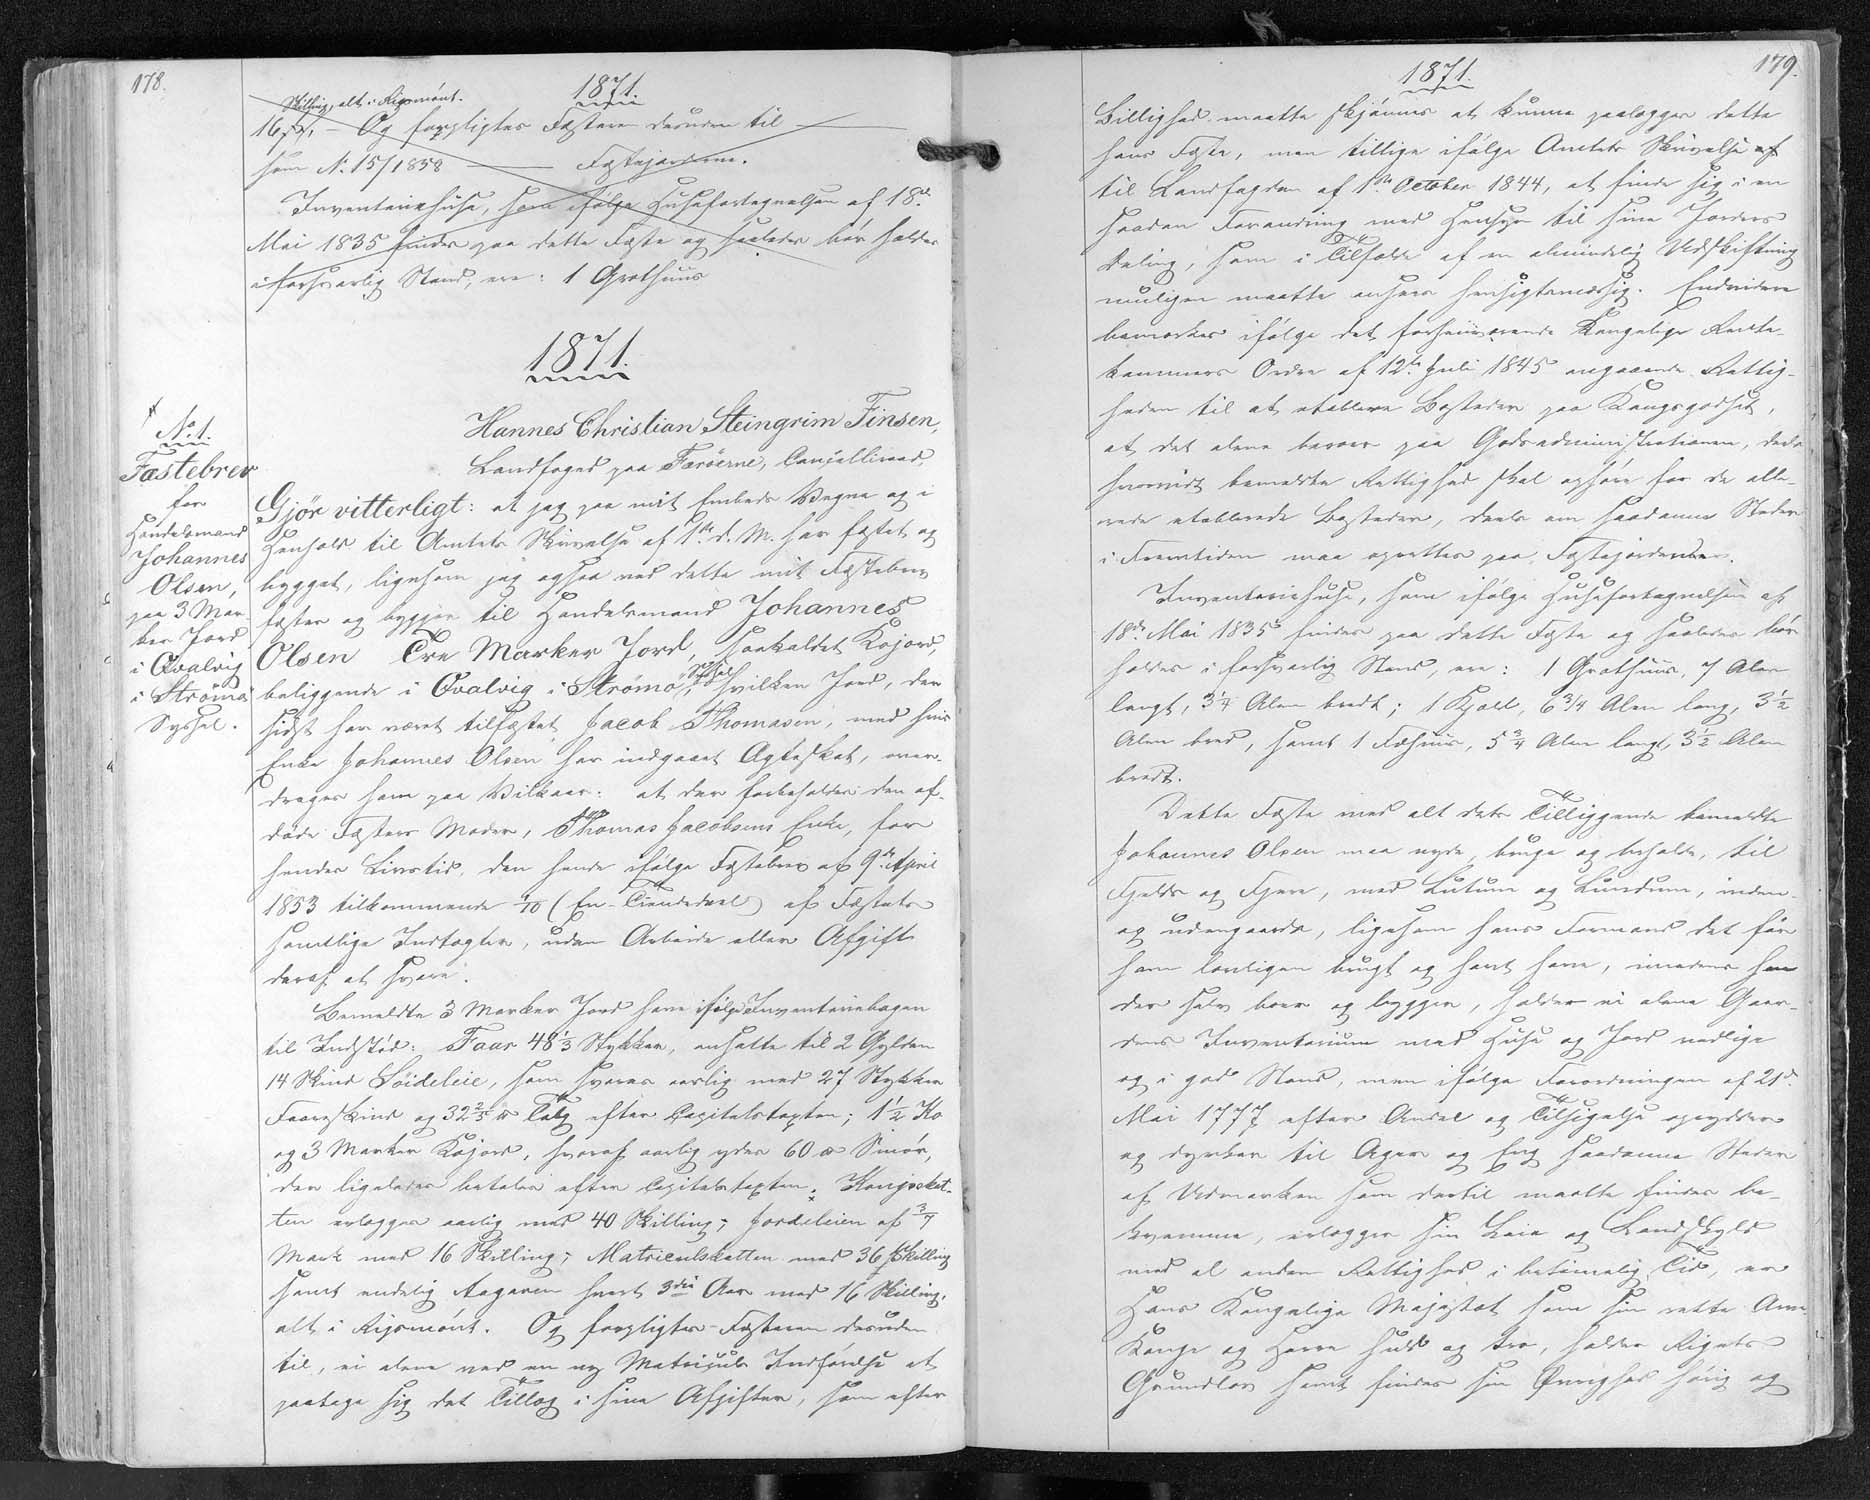 178.
1871.
Skilling, alt i Rigsmönt.
16 — Og forpligtes Fæsteren desuden til —
som No. 15/1858 — Fæstejorderne.
Inventariehuse, som ifølge Husefortegnelsen af 18de
Mai 1835 findes paa dette Fæste og saaledes bör holdes
i forsvarlig Stand, ere: 1 Grothuus
1871.
No. 1.
Fæstebrev
for
Handelsmand
Johannes
Olsen,
paa 3 Mar-
ker Jord
i Qvalvig
i Strömö
Syssel.
Hannes Christian Steingrim Finsen,
Landfoged paa Færöerne, Cancelliraad,
Gjör vitterligt: at jeg paa mit Embeds Vegne og i
Henhold til Amtets Skrivelse af 1ste d. M. har fæstet og
bygget, ligesom jeg ogsaa ved dette mit Fæstebrev
fæster og bygger til Handelsmand Johannes
Olsen Tre Marker Jord, saakaldet Kojord,
beliggende i Qvalvig i Strömö Syssel, hvilken Jord, der
sidst har været tilfæstet Jacob Thomasen, med hvis
Enke Johannes Olsen har indgaaet Ægteskab, over-
drages ham paa Vilkaar: at der forbeholdes den af-
döde Fæsters Moder, Thomas Jacobsens Enke, for
hendes Livstid, den hende ifölge Fæstebrev af 9de April
1853 tilkommende 1/10 (En Tiendedeel) af Fæstets
samtlige Indtægter, uden Arbeide eller Afgift
deraf at svare.
Bemeldte 3 Marker Jord have ifölge Inventariebogen
til Indstöd: Faar 48 1/3 Stykker, ansatte til 2 Gylden
14 Skind Söideleie, som svares aarlig med 27 Stykker
Faareskind og 32 2/5 ℔ Talg efter Capitelstaxten; 1 1/2 Ko
og 3 Marker Kojord, hvoraf aarlig ydes 60 ℔ Smör,
der ligeledes betales efter Capitelstaxten. Kongsskat-
ten erlægges aarlig med 40 Skilling; Jordeleien af 3/7
Mark med 16 Skilling; Matriculskatten med 36 Skilling
samt endelig Aagaven hvert 3die Aar med 16 Skilling,
alt i Rigsmönt. Og forpligtes Fæsteren desuden
til, ei alene ved en ny Matriculs Indförelse at
paatage sig det Tillæg i sine Afgifter, som efter
1871.
179.
Billighed maatte skjönnes at kunne paalægges dette
hans Fæste, men tillige ifölge Amtets Skrivelse
til Landfogden af 1ste October 1844, at finde sig i en
saadan Forandring med Hensyn til sine Jorders
Deling, som i Tilfælde af en almindelig Udskiftning
muligen maatte ansees hensigtsmæssig. Endvidere
bemærkes ifölge det forhenværende Kongelige Rente-
kammers Ordre af 12te Juli 1845 angaaende Rettig-
heden til at etablere Bosteder paa Kongsgodset,
at det alene beroer paa Godsadministrationen, deels
hvorvidt bemeldte Rettighed skal ophöre for de alle-
rede etablerede Bosteder, deels om saadanne Steder
i Fremtiden maa oprettes paa Fæstejorderne.
Inventariehuse, som ifölge Husefortegnelsen af
18de Mai 1835 findes paa dette Fæste og saaledes bör
holdes i forsvarlig Stand, ere: 1 Grothuus, 7 Alen
langt, 3 1/4 Alen bredt; 1 Hjald, 6 3/4 Alen lang, 3 1/2
Alen bred, samt 1 Fæhuus, 5 3/4 Alen langt, 3 1/2 Alen
bredt.
Dette Fæste med alt dets Tilliggende bemeldte
Johannes Olsen maa nyde, bruge og beholde, til
Fjelds og Fjære, med Lutum og Lundum, inden-
og udengaards, ligesom hans Formand det för
ham lovligen brugt og havt have, imedens han
der selv boer og bygger, holder ei alene Gaar-
dens Inventarium med Huse og Jord vedlige
og i god Stand, men ifölge Forordningen af 21de
Mai 1777 efter Andel og Tilsigelse oprydder
og dyrker til Ager og Eng saadanne Steder
af Udmarken som dertil maatte findes be-
kvemme, erlægger sin Leie og Landskyld
med al anden Rettighed i betimelig Tid, er
Hans Kongelige Majestæt som sin rette Arve
Konge og Herre huld og tro, holder Rigets
Grundlov samt findes sin Övrighed hörig og